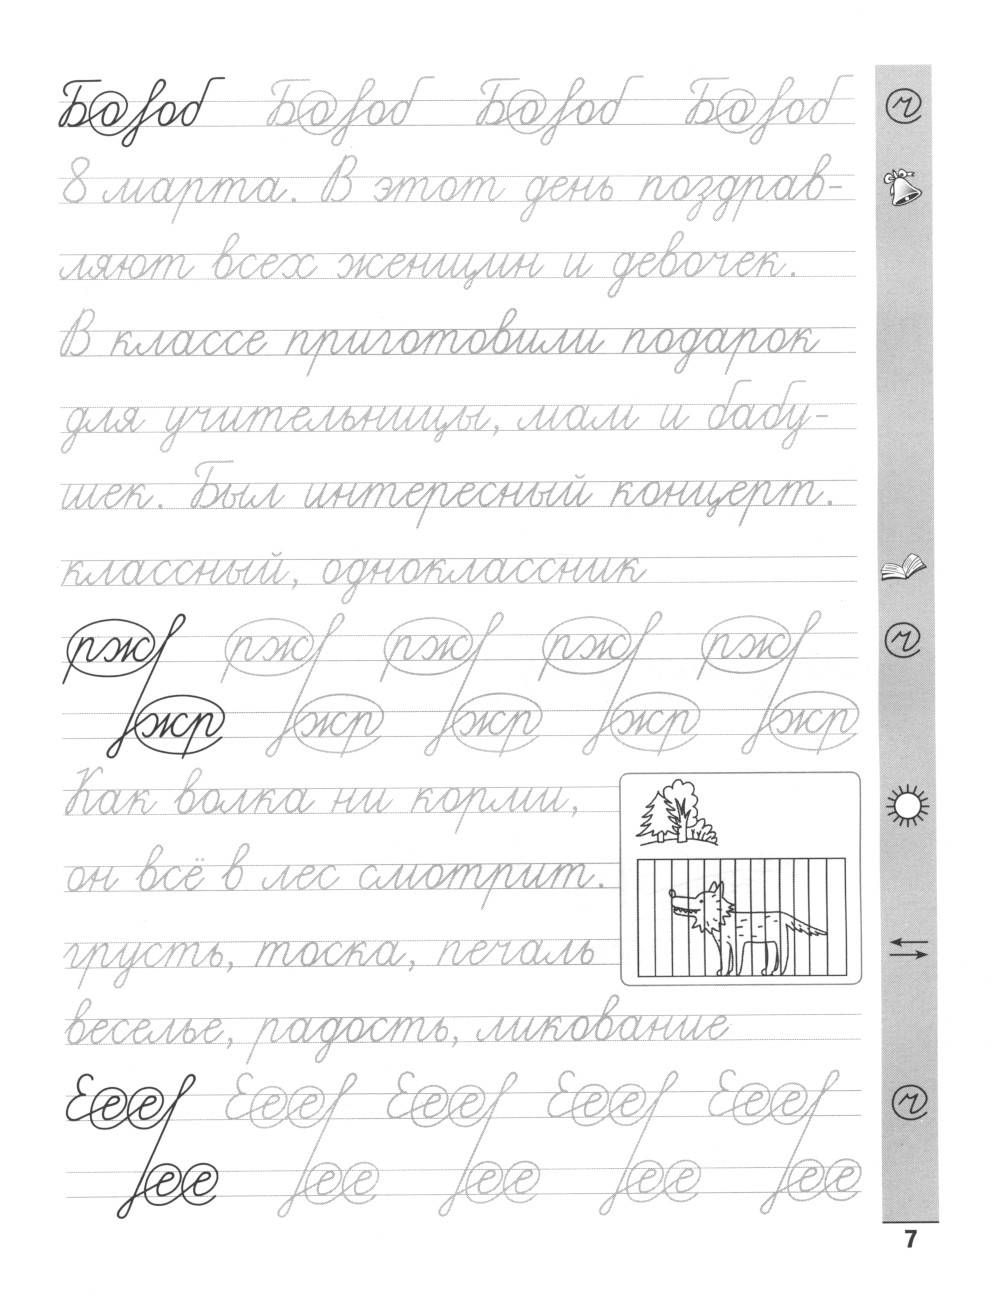 Ба об Ба об Ба об Ба об
8 марта. В этот день поздрав-
ляют всех женщин и девочек.
В классе приготовили подарок
для учительницы, мам и бабу-
шек. Был интересный концерт.
классный, одноклассник
рж рж рж рж рж
жр жр жр жр жр
Как волка ни корми,
он всё в лес смотрит.
грусть, тоска, печаль
веселье, радость, ликование
Еее Еее Еее Еее Еее
ее ее ее ее ее
7